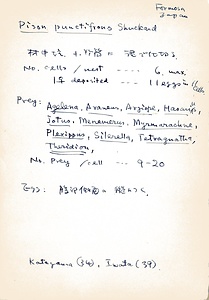 Formosa
Japan
Pison punctifrons Shuckard
No. cells / nest ---- 6. max
1年 deposited --- 11 eggs in 11 cells
Prey: Agelena, Araneus, Argiope, Hasarius,
Jotus, Menemerus, Myrmarachne,
Plexippus, Silerella, Tetragnatha,
Theridion,
No. Prey / cell --- 9-20
Egg: 腹部側面に
Katayama (34), Iwata (39).